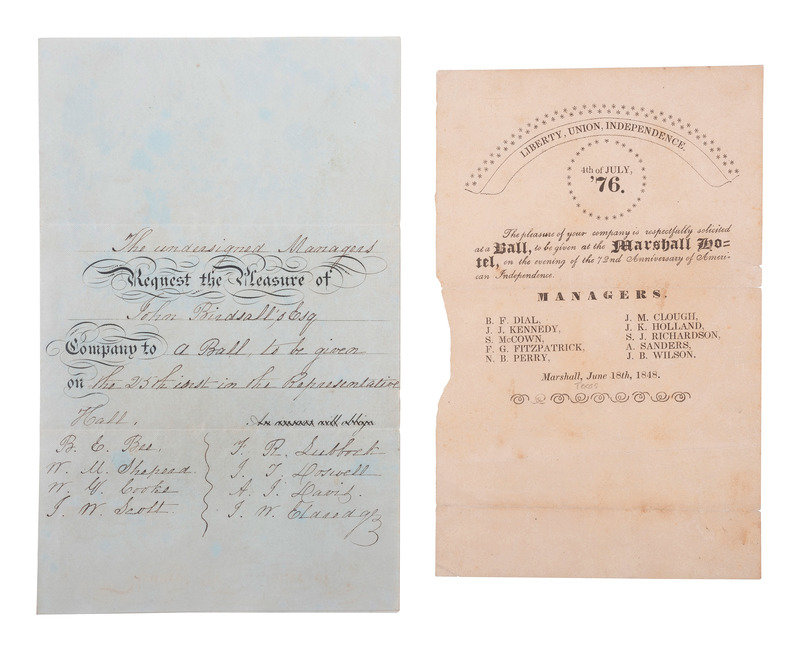 The undersigned Managers
Request the Pleasure of
John Birdsall's Esq
Company to a Ball, to be given
on the 25th inst in the Representative
Hall.
B. E. Bee.
W. M. Shepead
W. G. Cooke
J. W. Scott.
F. R. Lubbock
A. J. Davis.
J. W. Eldridge
LIBERTY, UNION, INDEPENDENCE.
4th of JULY,
'76.
The pleasure of your company is respectfully solicited
at a Ball, to be given at the Marshall Ho-
tel, on the evening of the 72nd Anniversary of Ameri-
can Independence.
MANAGERS.
B. F. DIAL,
J. J. KENNEDY,
S. McCOWN,
F. G. FITZPATRICK,
N. B. PERRY,
J. M. CLOUGH,
J. K. HOLLAND,
S. J. RICHARDSON,
A. SANDERS,
J. B. WILSON.
Marshall, June 18th, 1848.
Texas